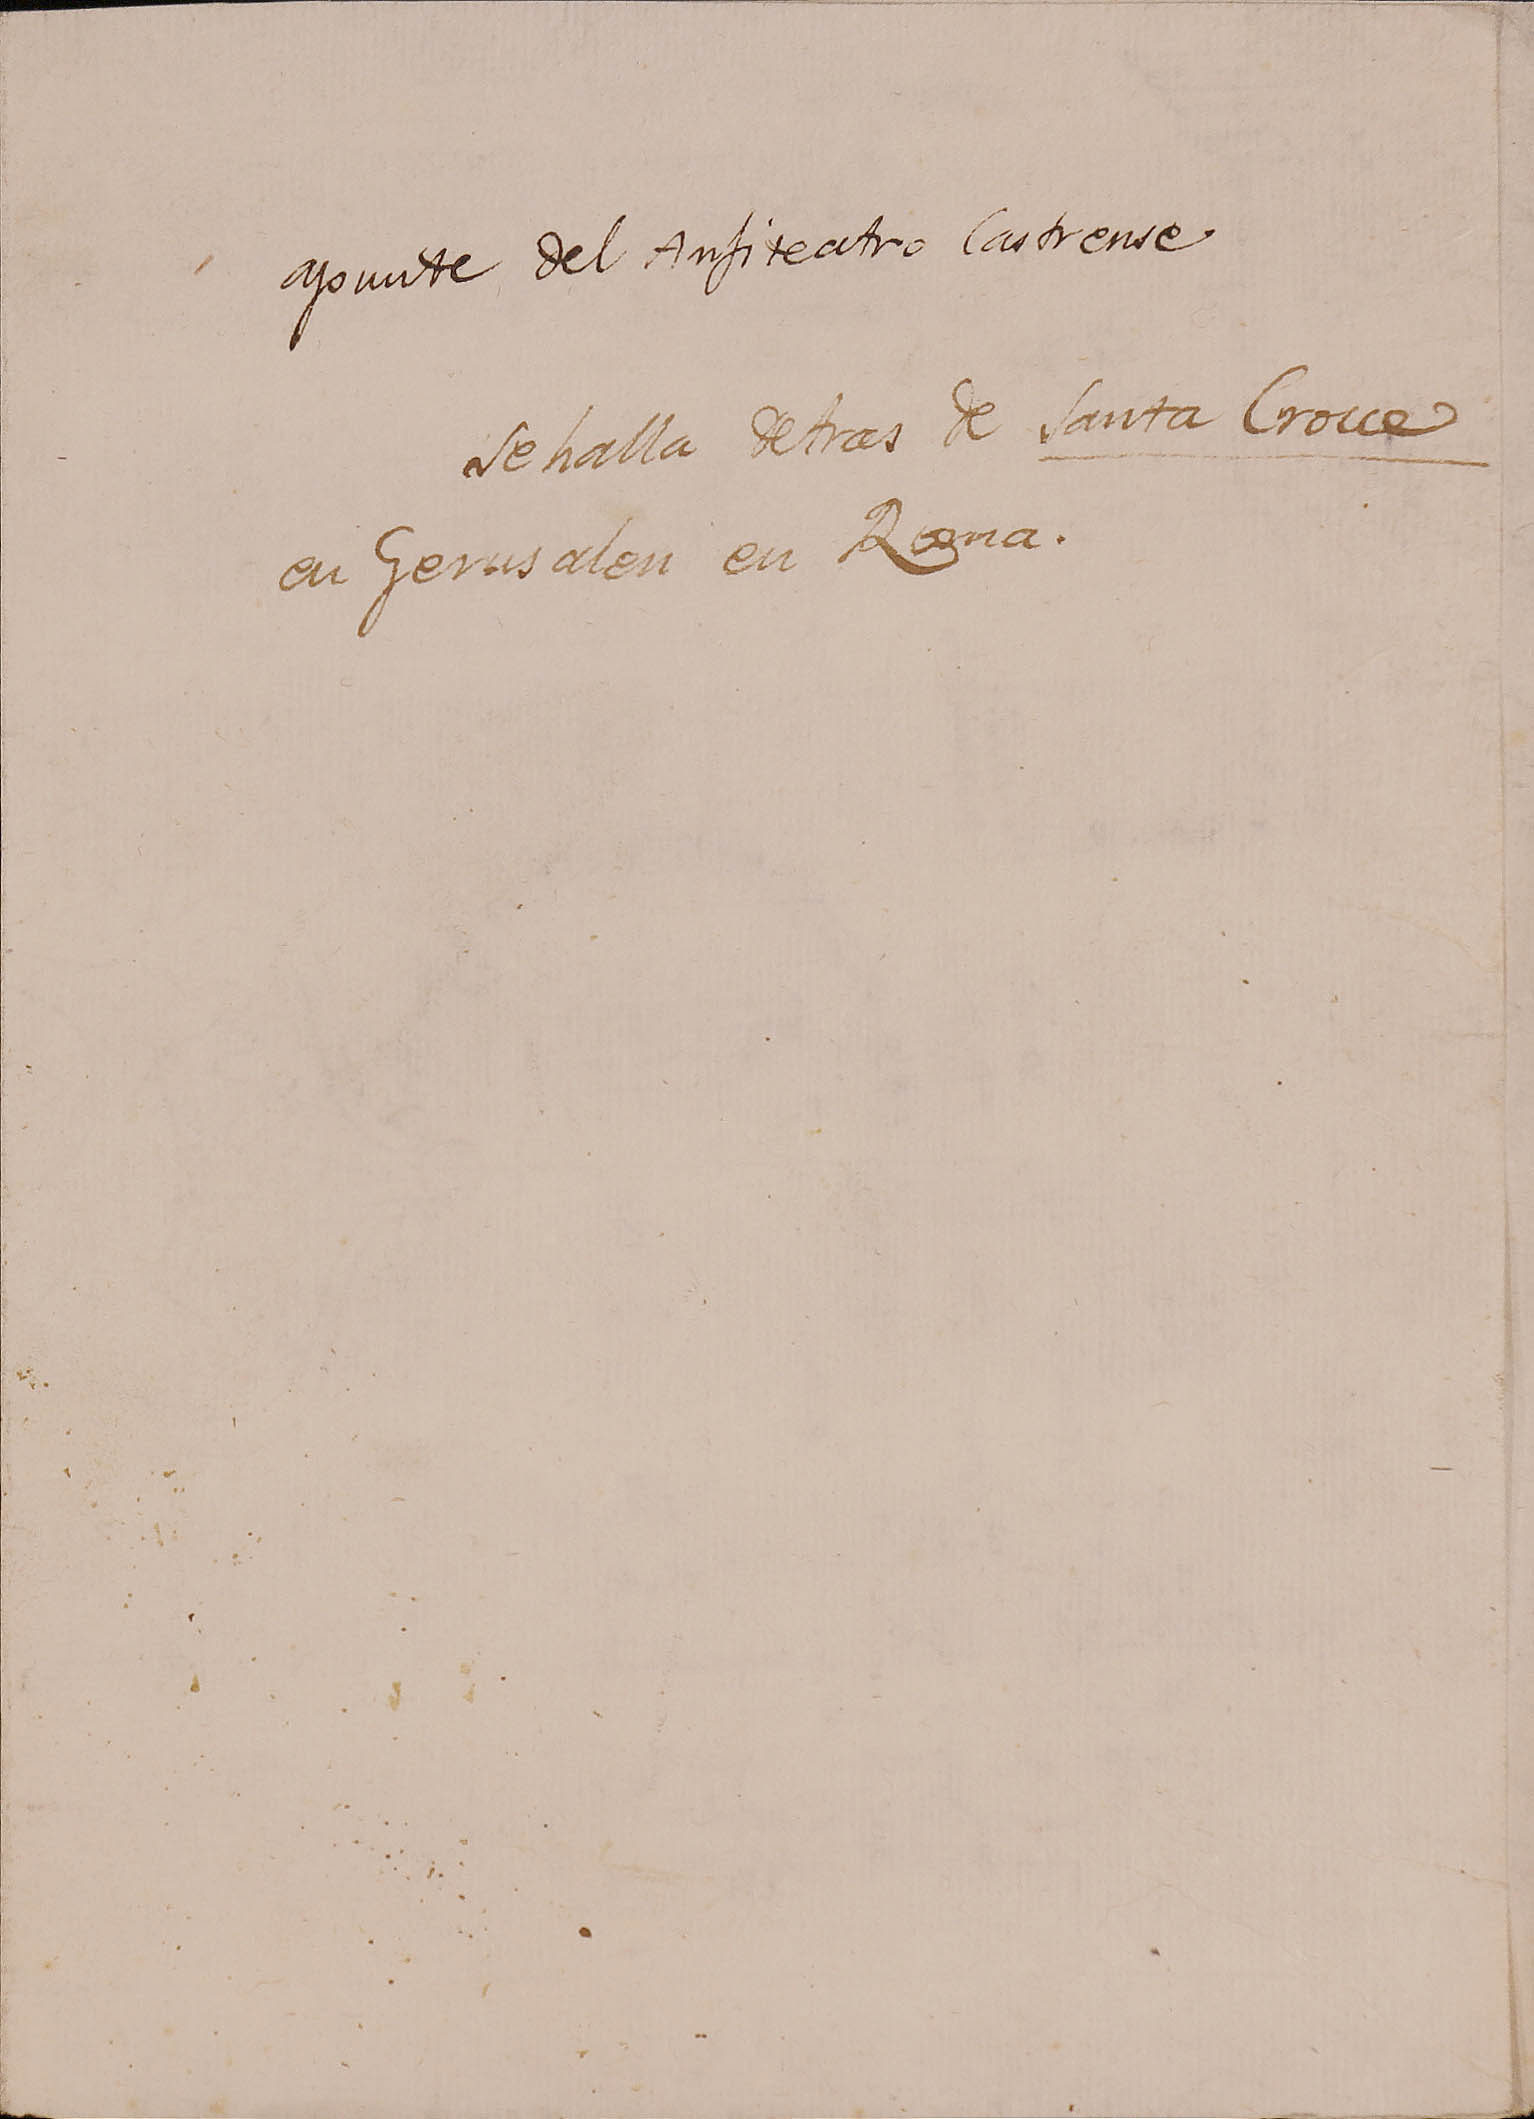 apunte del Anfiteatro Castrense
Se halla detras de Santa Croce
en Gerusalen en Roma.